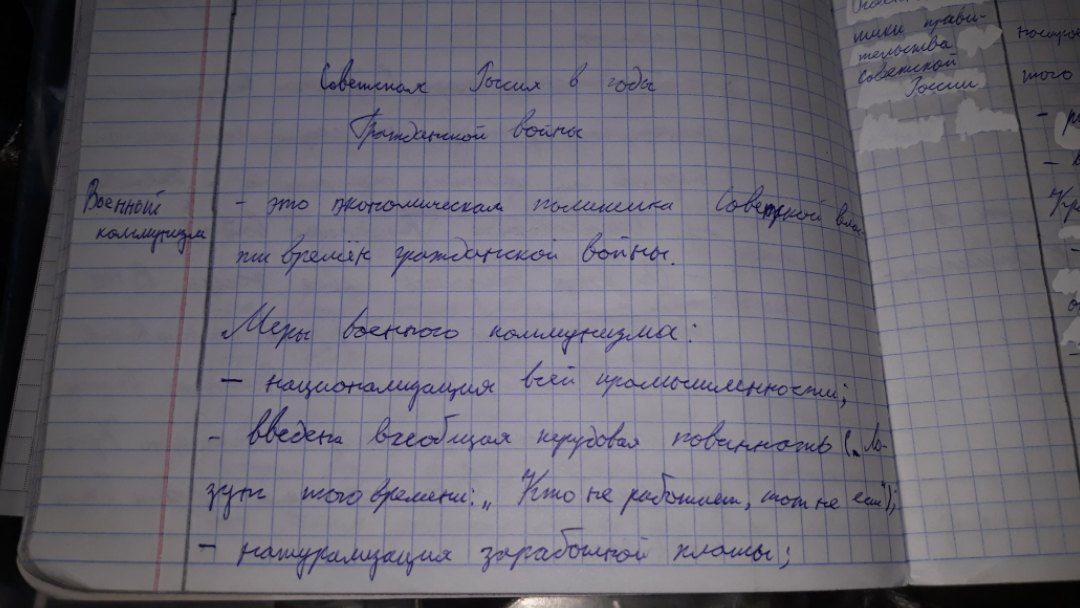 Советская Россия в годы
Гражданской войны
Военный
коммунизм
- это экономическая политика Советской влас-
ти времён гражданской войны.
Меры военного коммунизма:
- национализация всей промышленности;
- введена всеобщая трудовая повинность („Ло-
зунг того времени: „Кто не работает, тот не ест");
- натурализация заработной платы;
тики прави-
тельства
Советской
России
того